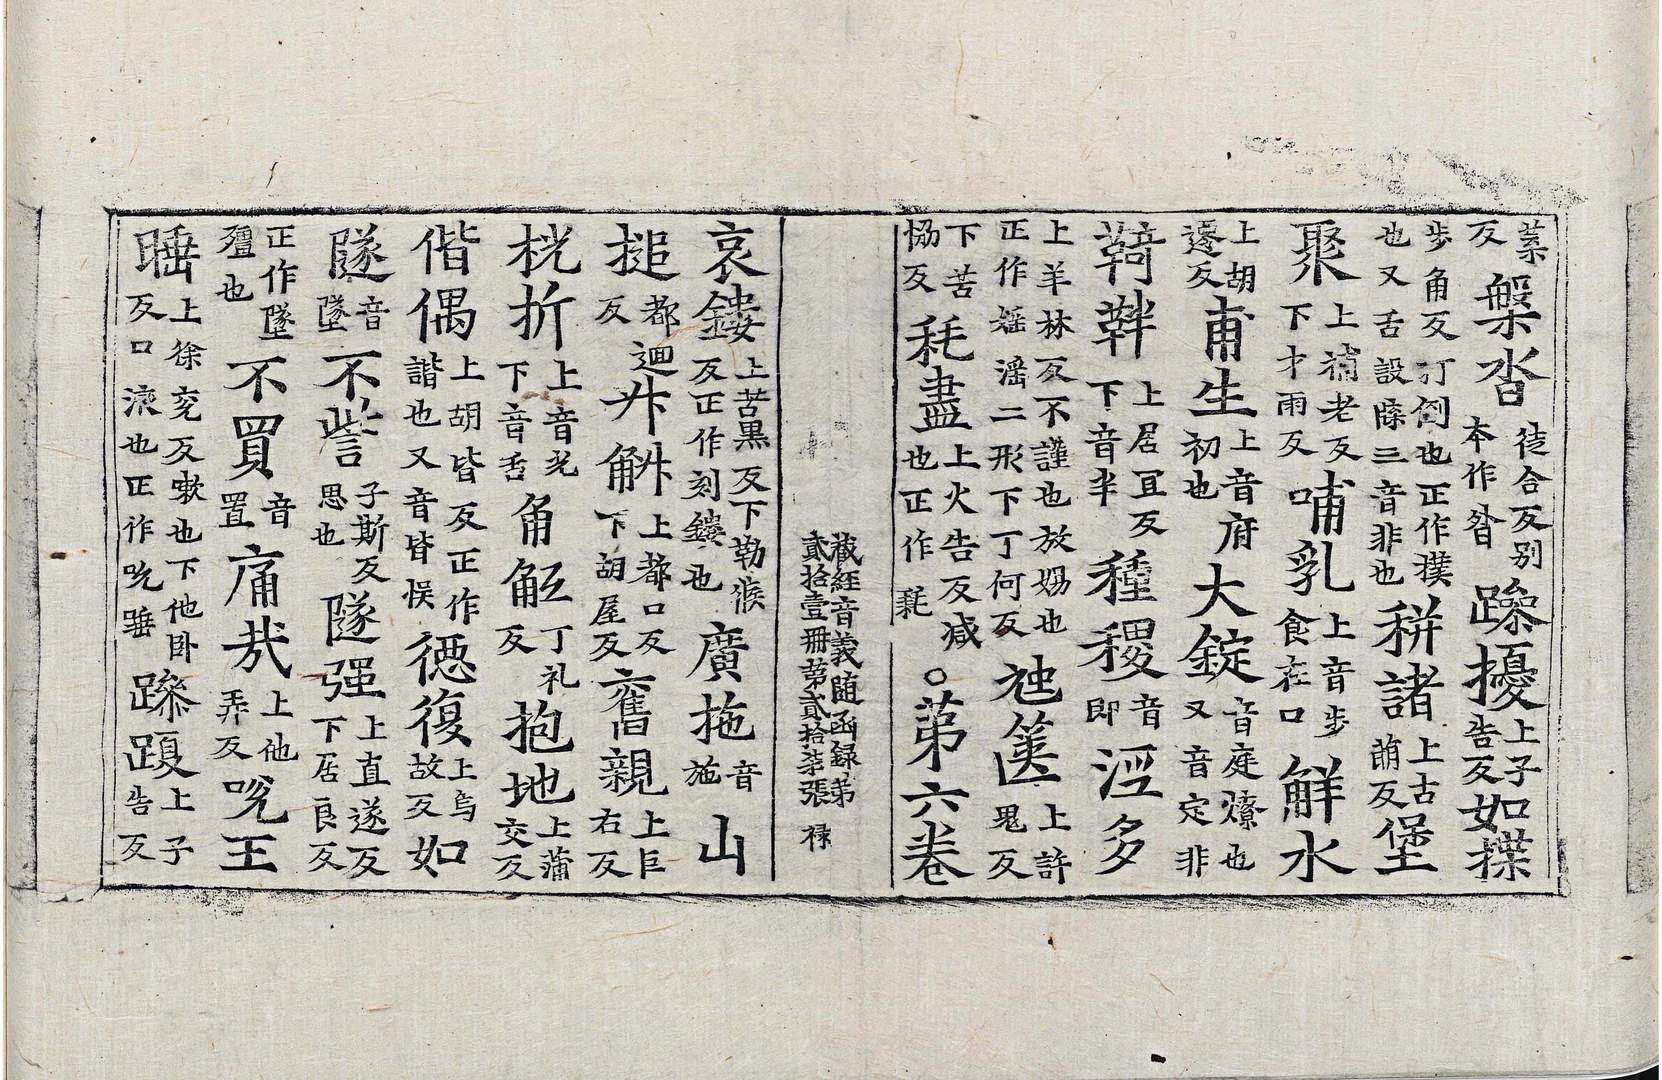 䒳反槃沓徒合反别本作沓躁擾上子告反如揲
步角反打倒也正作撲也又舌設䐑三音非也䅘諸上古萠反堡
聚上補老反下才雨反哺乳上音步食在口觧水
上胡邊反甫生上音府初也大錠音庭燎也又音定非
鞲鞶上居冝反下音半種稷音即淫多
上羊林反不謹也放㛼也正作婬滛二形下丁何反虵篋上許鬼反
下苦恊反秏盡上火告反减也正作㲠○苐六卷
藏經音義随函録苐貳拾壹冊苐貳拾柒張 禄
哀鏤上苦黒反下勒㺅反正作刻鏤也廣拖音施山
搥都迴反升斛上都口反下胡屋反舊親上巨右反
桄折上音光下音舌角觝丁礼反抱地上蒲交反
偕偶上胡皆反正作諧也又音皆悮𢙣復上烏故反如
隧音墜不訾子斯反思也隧强上直遂反下居良反
正作墜殭也不買音置痛㢤上他弄反吮王
唾上徐兖反嗽也下他卧反口液也正作吮䑛躁踧上子告反